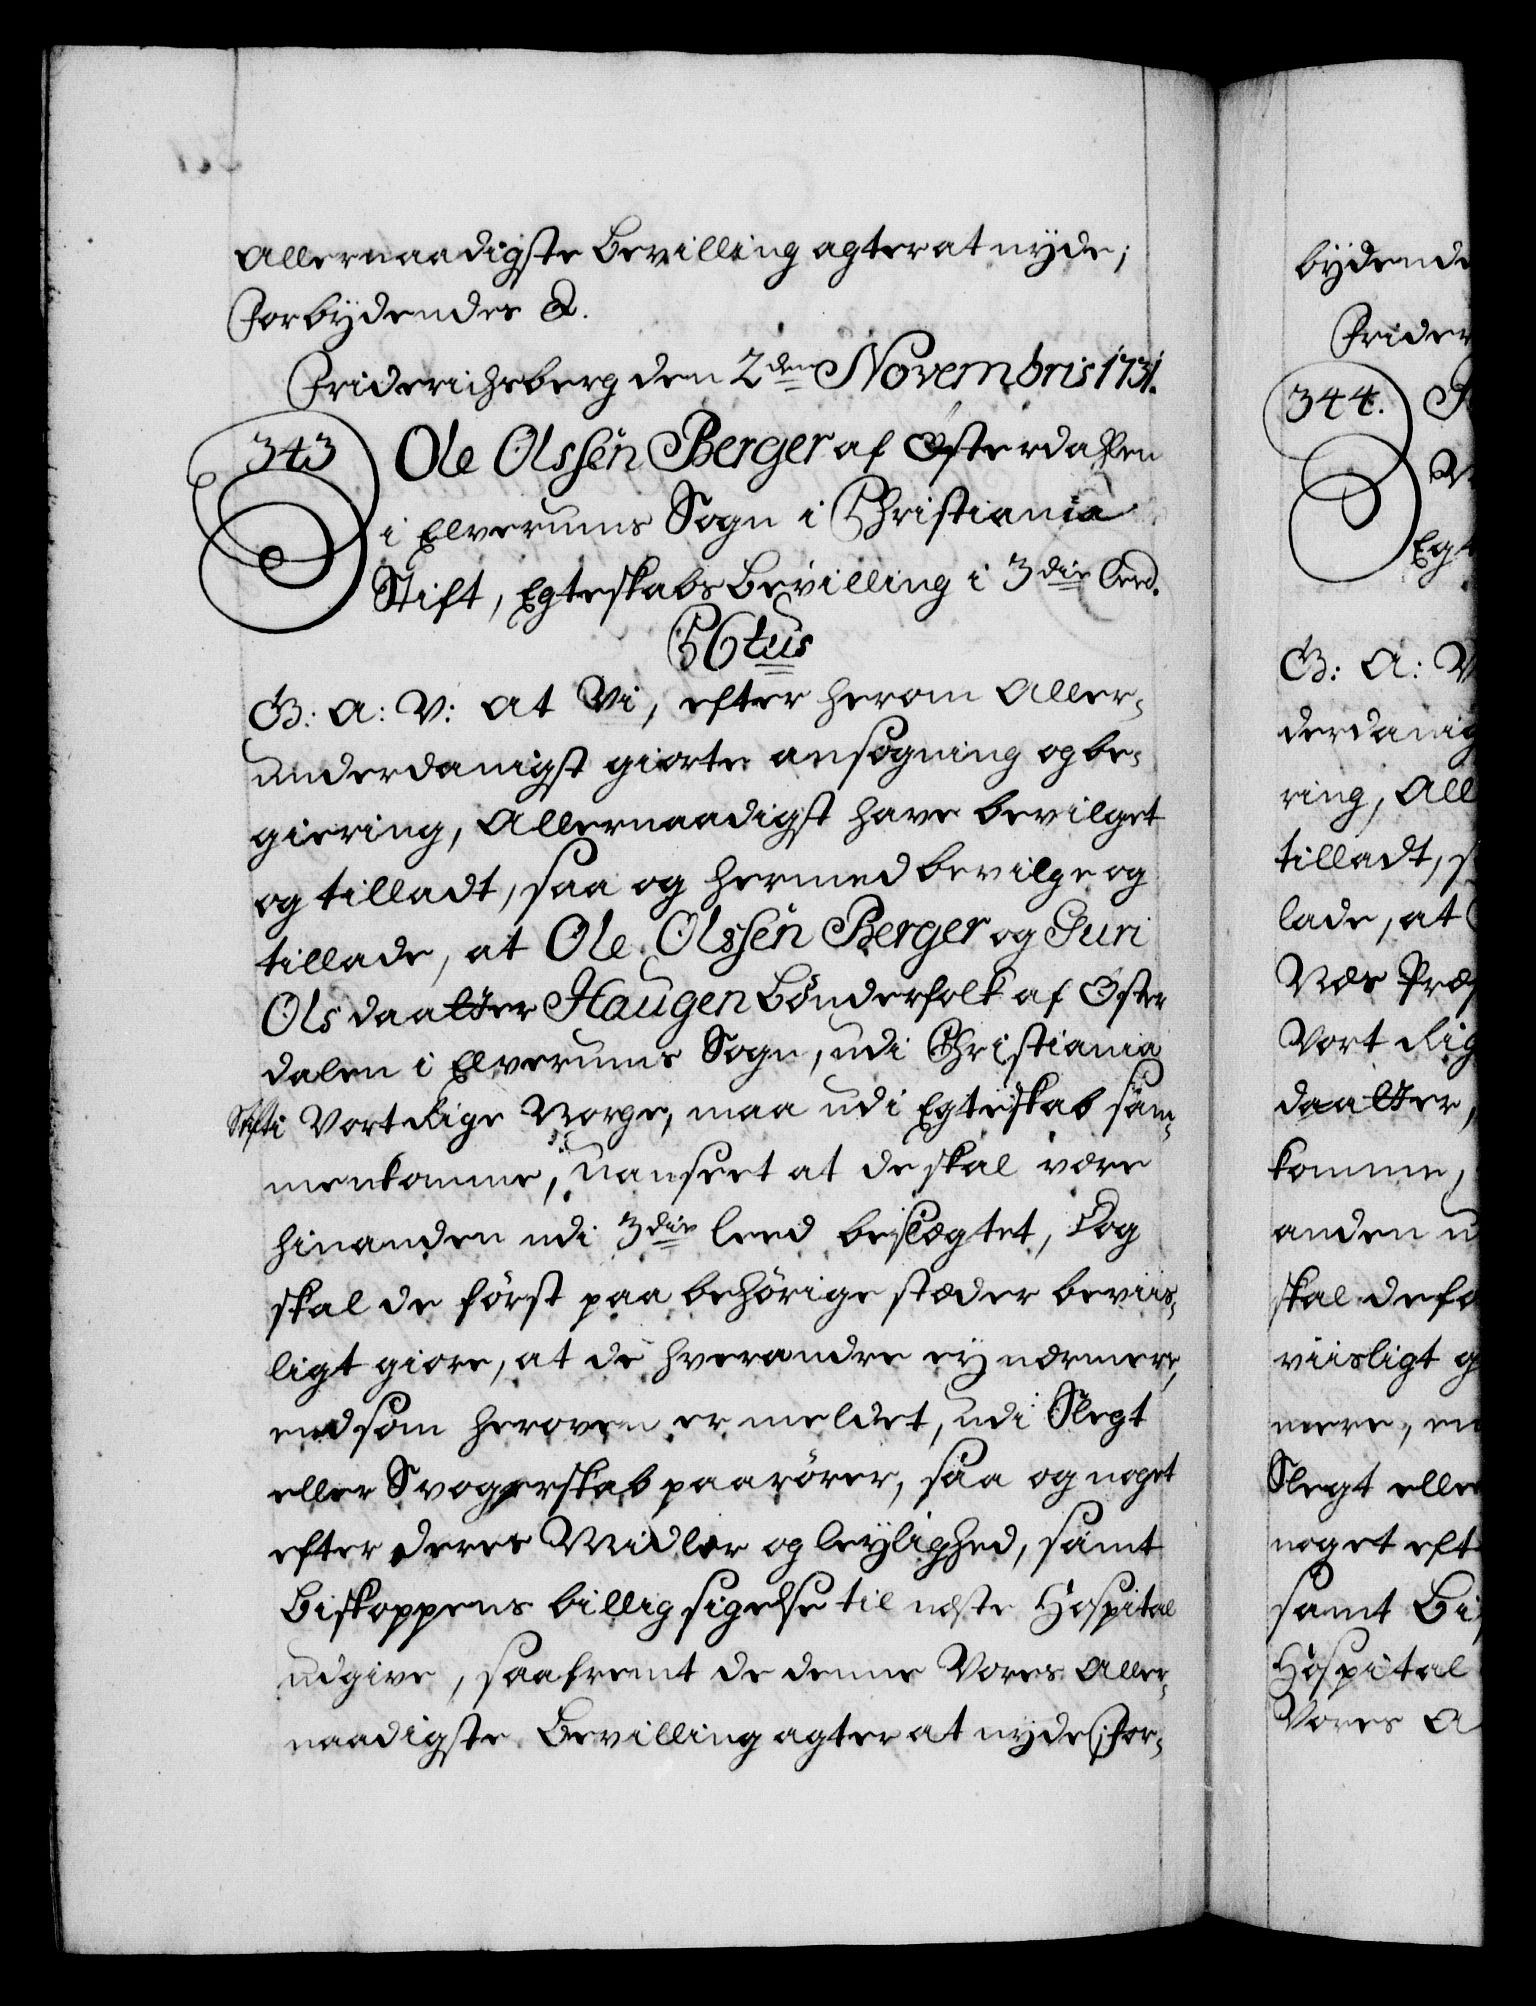 Allernaadigste Bevilling agter at nyde;
Forbydendes &.
Friderichsberg den 2den Novembris 1731.
343
Ole Olssen Berger af Østerdahlen
i Elverums Sogn i Christiania
Stift, Egteskabs Bevilling i 3die Leed.
C6tus
G: A: V: At Vi, efter herom Aller-
underdanigst giorte ansøgning og be-
giering, Allernaadigst have bevilget
og tilladt, saa og hermed bevilge og
tillade, at Ole Olssen Berger og Guri
Olsdaatter Haugen Bønderfolk af Øster
dalen i Elverums Sogn, udi Christiania
Stift i Vort Rige Norge, maa udi Egteskab sam-
menkomme, uanseet at de skal være
hinanden udi 3die leed beslægtet, Dog
skal de først paa behørige stæder beviis-
ligt giøre, at de hverandre ey nærmere,
end som heroven er meldet, udi Slegt
eller Svogerskab paarører, saa og noget
efter deres Midler og leylighed, samt
Biskoppens billig sigelse til næste Hospital
udgive, saafremt de denne Vores Aller-
naadigste Bevilling agter at nyde; For-
bydende
Frider
344.
Egt
G: A: V
derdanig
ring, All
tilladt, s
lade, at
Næs Præs
Vort Rig
daatter,
komme,
anden u
skal de fø
viisligt g
mere, en
Slegt eller
noget eft
samt Bis
Hospital
Vores A